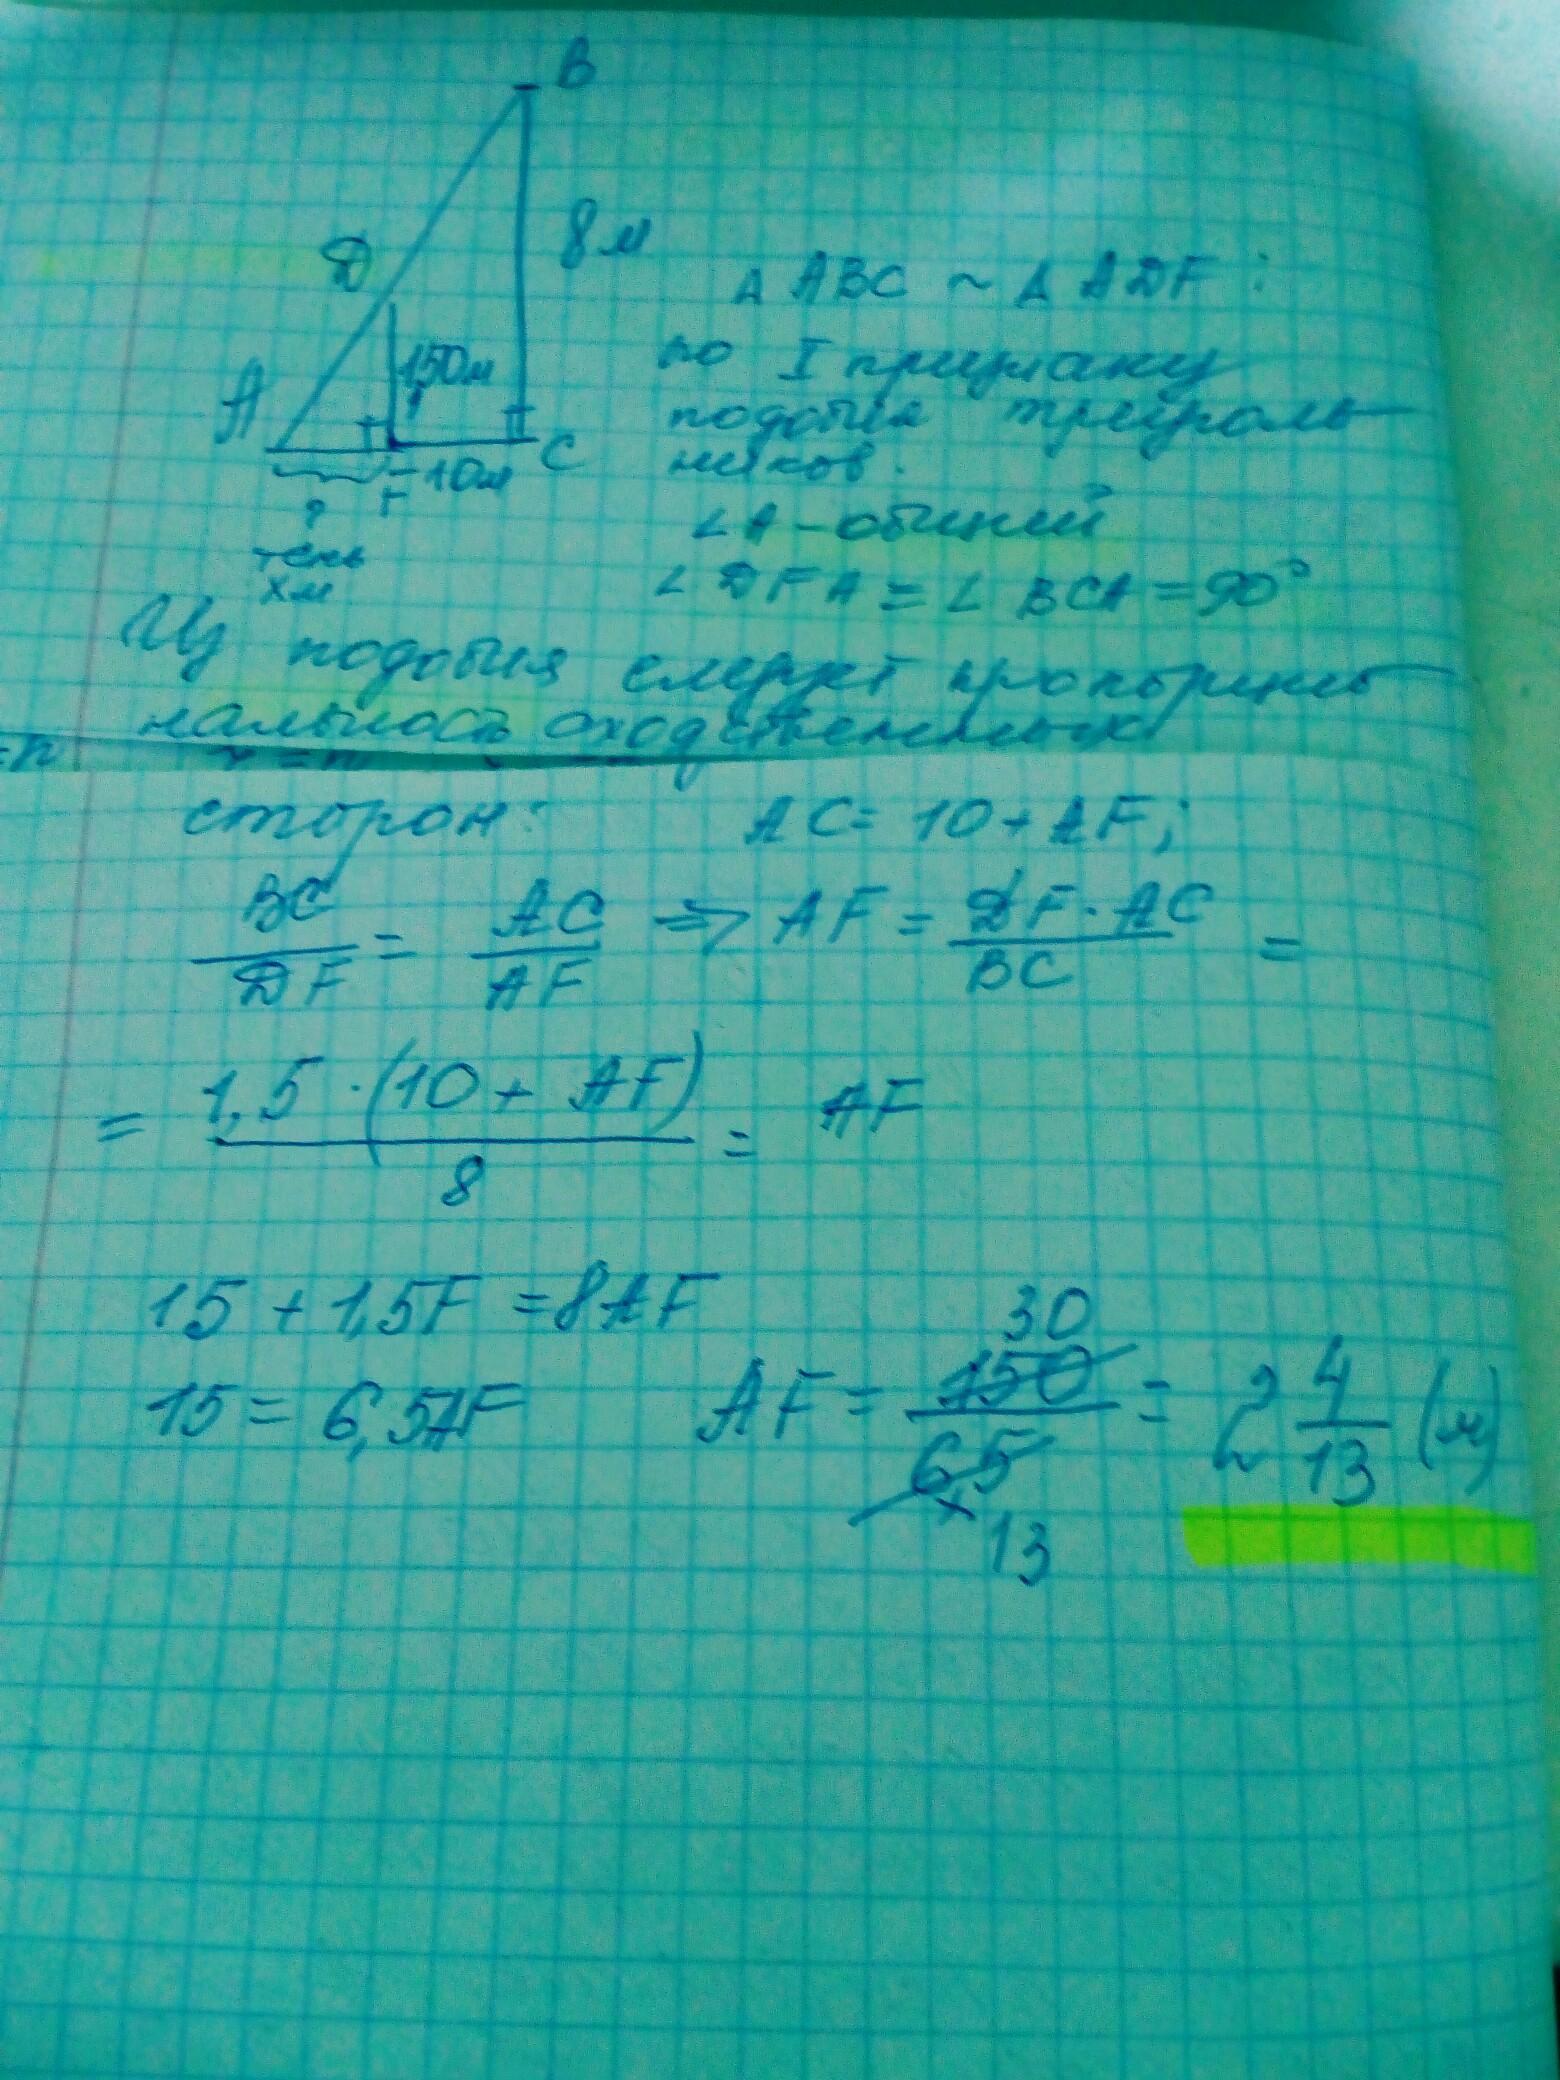 B
D
8м
△ ABC ~ △ ADF :
150м
по I признаку
A
подобия треуголь
C
ников.
F
10м
?
∠A - общий
тень
xм
∠ DFA = ∠ BCA = 90°
Из подобия следует пропорцио
нальность сходственных
сторон: AC = 10 + AF;
BC/DF = AC/AF => AF = DF · AC/BC =
= 1,5 · (10 + AF)/8 = AF
15 + 1,5F = 8AF
30
15 = 6,5AF AF = 150/65 = 2 4/13 (м)
13